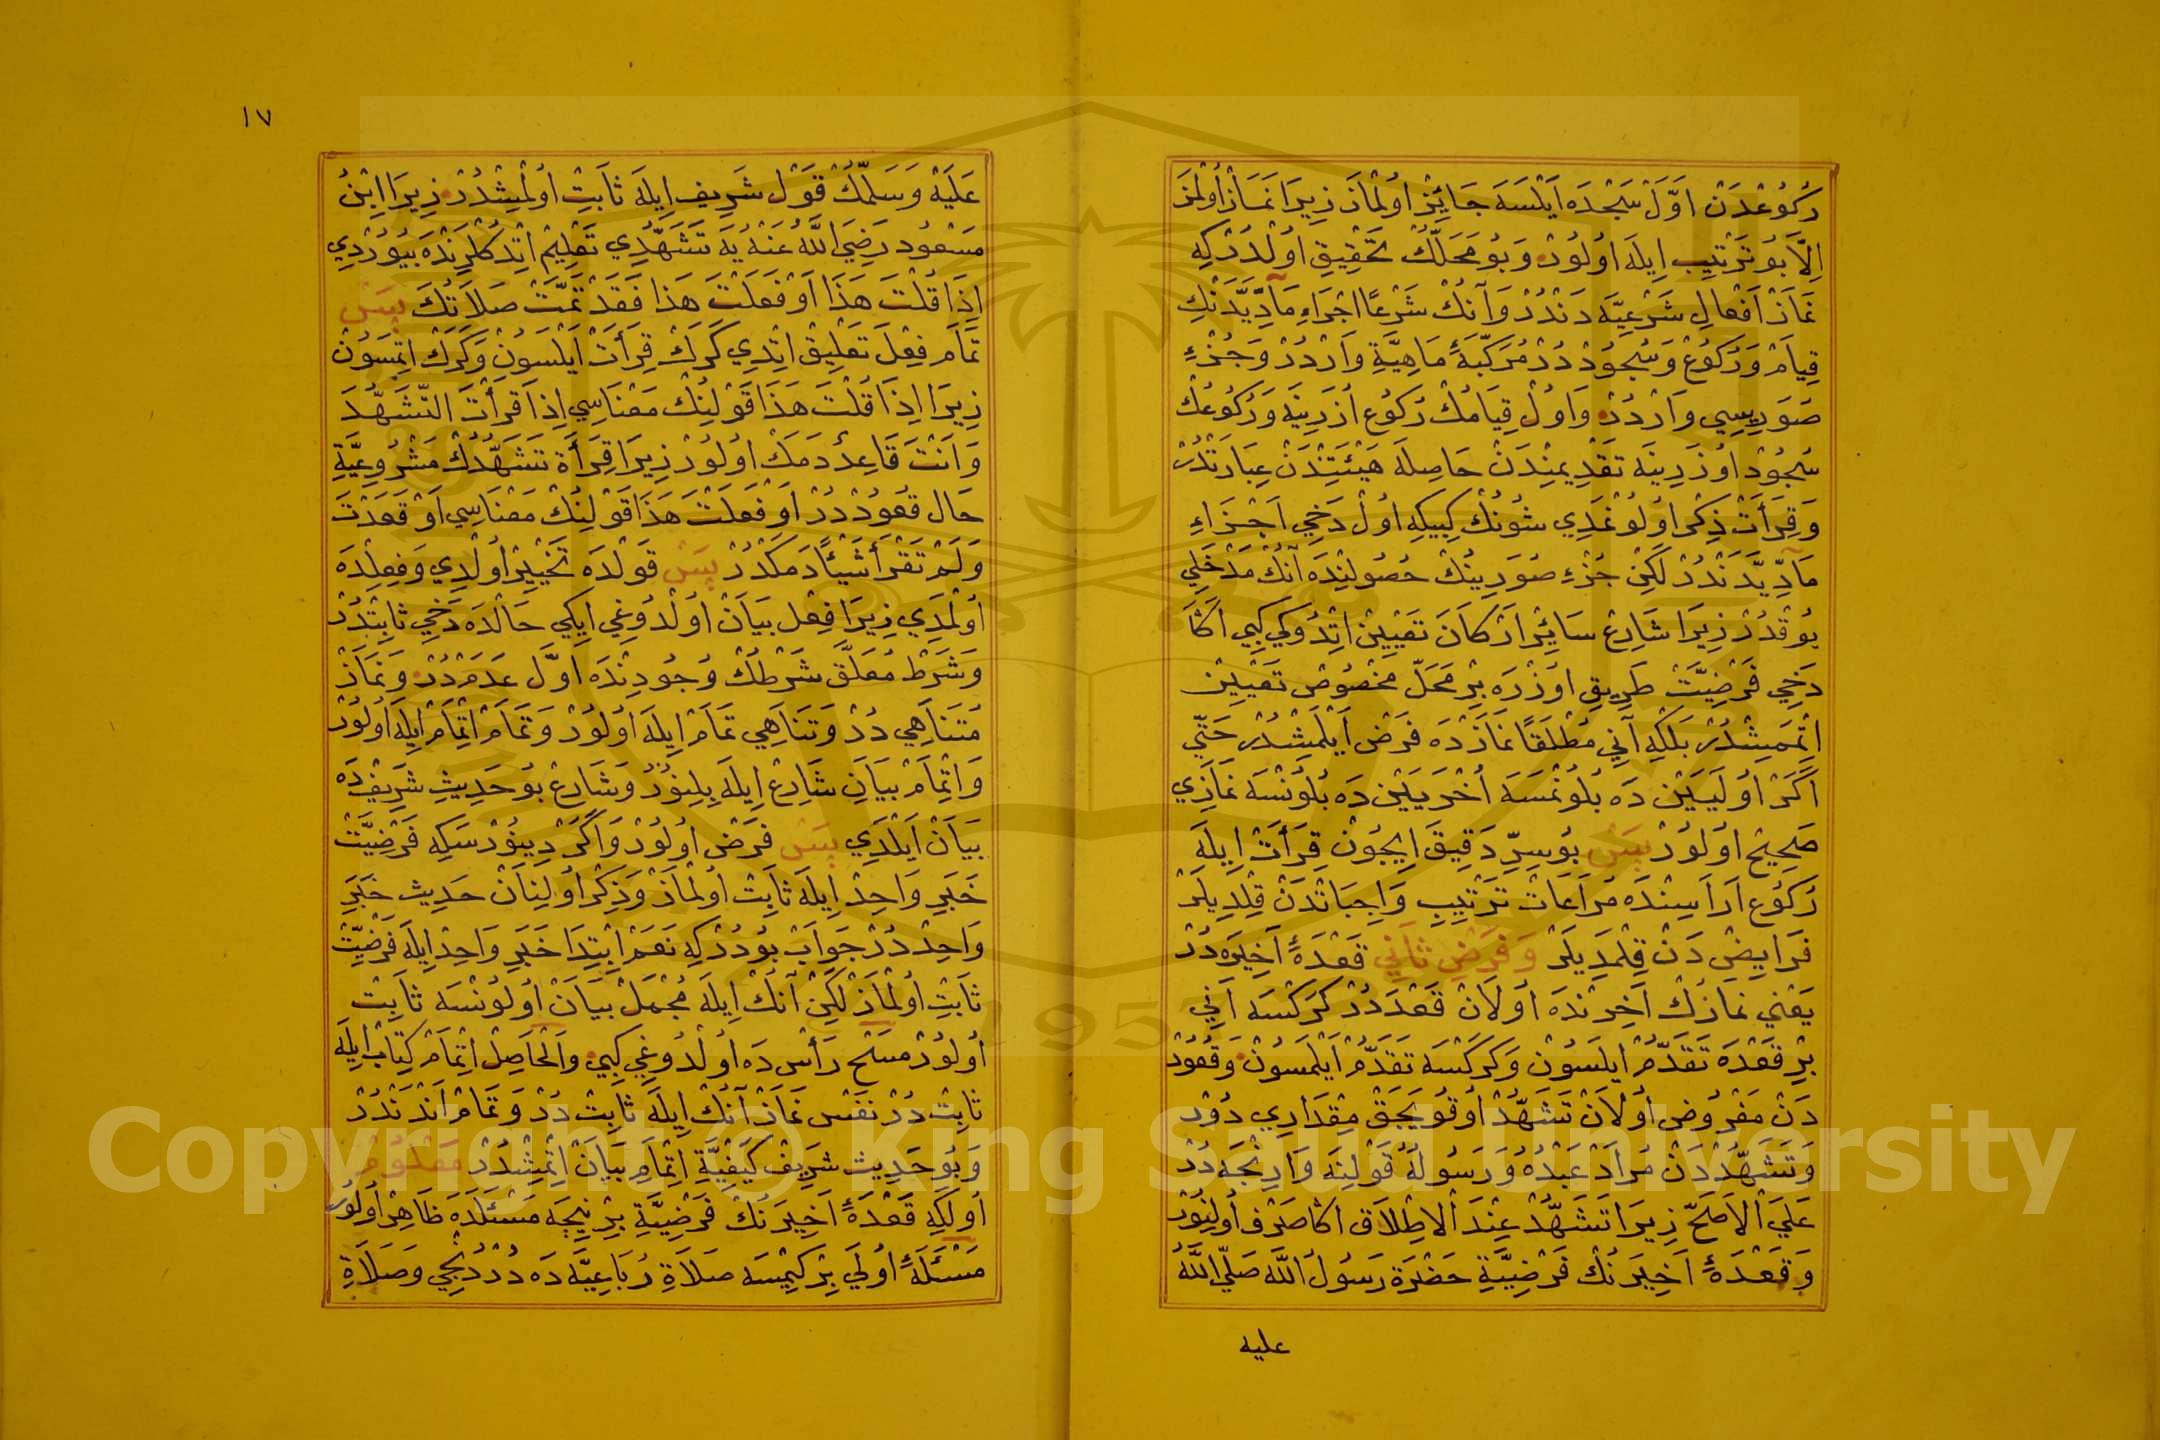 رُكُوُعْدَنْ اَوَّلْ سَجْدَه اَيْلَسَه جَائِزْ اوُلْمَازْ زِيرَا نَمَازْ اوُلْمَزْ
اِلَّا بُو تَرْتِيبِ اِيلَه اوُلُورْ وَبُو مَحَلُّكْ تَحْقِيقِ اوُلْدُرْكِه
نَمَازْ اَفْعَالِ شَرْعِيَّه دَنْدُرْ وَآنُكْ شَرْعًا اجْزَاءِ مَآدِّيَّه‌نِكِ
قِيَامْ وَرُكُوعْ وَسُجُودْ دُرْ مُرَكَّبَهٴِ مَاهِيَّةِ وَارْدُرْ وَجُزْءِ
صَوَرِيسِي وَارْدُرْ وَاوُلْ قِيَامُكْ رُكُوعِ اُزَرِينَه وَرُكُوعُكْ
سُجُودْ اُوزَرِينَه تَقْدِيمِنْدَنْ حَاصِلَه هَيْئَتِنْدَنْ عِبَارَتْدُرْ
وَقِرَأَتْ ذِكْر اوُلُونْمَدِي شُونُكْ كِيبِكِه اوُلْ دَخِي اَجْزَاءِ
مَآدِّيَّه‌نْدُرْ لَكِنْ جُزْءِ صُورِينُكْ حُصُولِنْدَه آنُكْ مَدْخَلِي
يُوقْدُرْ زِيرَا شَارِعْ سَائِرْ اَرْكَانَ تَعْيِينْ اِتْدُوكِي كِبِي اَكَا
دَخِي فَرْضِيَّتْ طَرِيقِ اوُزْرَه بِرْ مَحَلّ مَخْصُوصْ تَعْيِينْ
اِتْمَمِشْدُرْ بَلْكِه آنِي مُطْلَقًا نَمَازْدَه فَرْضْ اَيْلَمِشْدُرْ حَتَّي
اَكَرْ اُولَيَيْنْ دَه بُلُونْمَسَه اُخْرَيَيْنْ دَه بُلُونْسَه نَمَازِي
صَحِيحْ اوُلُورْ پَسْ بُو سِرِّ دَقِيقَ اِيچُونْ قِرَأَتْ اِيلَه
رُكُوعْ اَرَاسِنْدَه مُرَاعَاتْ تَرْتِيبِ وَاجِبَاتْدَنْ قِلْدِيلَرْ
فَرَايِضْ دَنْ قِلْمَدِيلَرْ وَفَرْضِ ثَانِي قَعْدَهٴِ اَخِيرَه دُرْ
يَعْنِي نمازُكْ اَخِرِنْدَه اوُلَانْ قَعْدَدُرْ كَرَكْسَه اَنِي
بِرْ قَعْدَه تَقَدُّمْ اَيلَسُونْ وَكَرَكْسَه تَقَدُّمْ اَيْلَمَسُونْ وَقُعُودْ
دَنْ مَفْرُوضْ اوُلَانْ تَشَهُّدْ اوُقُويَجَقْ مِقْدَارِي دُرْ
وَتَشَهُّدْدَنْ مُرَادْ عَبْدُهُ وَرَسُولُهُ قَوْلِنَه وَارِنْجَه دُرْ
عَلَي الْاَصَحّ زِيرَا تَشَهُّدْ عِنْدَ الْاِطْلَاق اَكَا صَرْف اوُلِنُورْ
وَقَعْدَهٴِ اَخِيرَنُكْ فَرْضِيَّةِ حَضْرَة رَسُولُ اللَّه صَلَّي اللَّهُ
عليه
١٧
عَلَيْه وَسَلَّمُكْ قَوْل شَرِيفِ اِيلَه ثَابِتْ اوُلْمِشْدُرْ زِيرَا اِبْنُ
مَسْعُود رَضِيَ اللَّهُ عَنْهُ يَه تَشَهُّدِي تَعْلِيمْ اِتْدُكْلَرِنْدَه بيُورْدِي
اِذَا قُلْتَ هَذَا اَوْ فَعَلْتَ هَذَا فَقَدْ تَمَّتْ صَلَاتُكَ پَسْ
تَمَام فِعْلَ تَعْلِيقْ اِتْدِي كَرَكْ قِرَأَتْ اَيْلَسُونْ وَكَرَكْ اِتْمَسُونْ
زِيرَا اِذَا قُلْتَ هَذَا قَوْلِنُكْ مَعْنَاسِي اِذَا قَرَأْتَ التَّشَهُّدَ
وَاَنْتَ قَاعِدٌ دِمَكْ اوُلُورْ زِيرَا قِرَأَة تَشَهُّدُكْ مَشْرُوعِيَّةِ
حَال قُعُودْدُرْ اَوْ فَعَلْتَ هَذَا قَوْلِنُكْ مَعْنَاسِي اَوْ قَعَدْتَ
وَلَمْ تَقْرَأْ شَيْئًا دِمَكْدُرْ پَسْ قَوْلْدَه تَخْيِيرْ اوُلْدِي وَفِعِلْدَه
اوُلْمَدِي زِيرَا فِعْل بَيَانْ اوُلْدُوغِي اِيكِي حَالْدَه دَخِي ثَابِتْدُرْ
وَشَرْط مُعَلَّق شَرْطُكْ وُجُودِنْدَه اوَّل عَدَمْدُرْ وَنَمَازْ
مُتَنَاهِي دُرْ وَتَنَاهِي تَمَامْ اِيلَه اوُلُورْ وَتَمَامْ اِتْمَامْ اِيلَه اوُلُورْ
وَاِتْمَامْ بَيَانِ شَارِعْ اِيلَه بِلِنُورْ وَشَارِعْ بُو حَدِيثِ شَرِيفْدَه
بَيَانْ اَيْلَدِي پَسْ فَرْض اوُلُورْ وَاَكَرْ دِينُورْسَكِه فَرْضِيَّتْ
خَبَرِ وَاحِدْ اِيلَه ثَابِتْ اوُلْمَازْ وَذِكْر اوُلِنَانْ حَدِيث خَبَرِ
وَاحِدْ دُرْ جَوَابْ بُودُرْكِه نَعَمْ اِبْتِدَا خَبَرِ وَاحِدْ اِيلَه فَرْضِيَّتْ
ثَابِتْ اوُلْمَازْ لَكِنْ آنُكْ اِيلَه مُجْمَلْ بَيَانْ اوُلُونْسَه ثَابِتْ
اوُلُورْ مَسْح رَأْس دَه اوُلْدُوغِي كِبِي وَالْحَاصِلْ اِتْمَامْ كِتَابْ اِيلَه
ثَابِتْ دُرْ نَفْس نَمَازْ آنُكْ اِيلَه ثَابِتْ دُرْ وَتَمَامْ اَنْدَنْدُرْ
وَبُو حَدِيث شَرِيفْ كَيْفِيَّةِ اِتْمَامِ بَيَانْ اِتْمِشْدُرْ مَعْلُومْ
اوُلَكِه قَعْدَهٴِ اَخِيرَنُكْ فَرْضِيَّةِ بِرْ نِيجَه مَسْئَلَدَه ظَاهِرْ اوُلُورْ
مَسْئَلَهٴِ اوُلَي بِرْ كِيمْسَه صَلَاةِ رُبَاعِيَّه دَه دُرْدُنْجِي وَصَلَاةِ
Copyright © King Saud University
1957